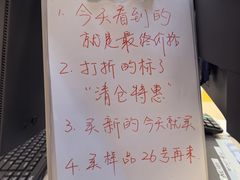 1. 今天看到的
就是最终价格
2. 打折的标了
“清仓特惠”
3. 买新的今天就买
4. 买样品26号再来